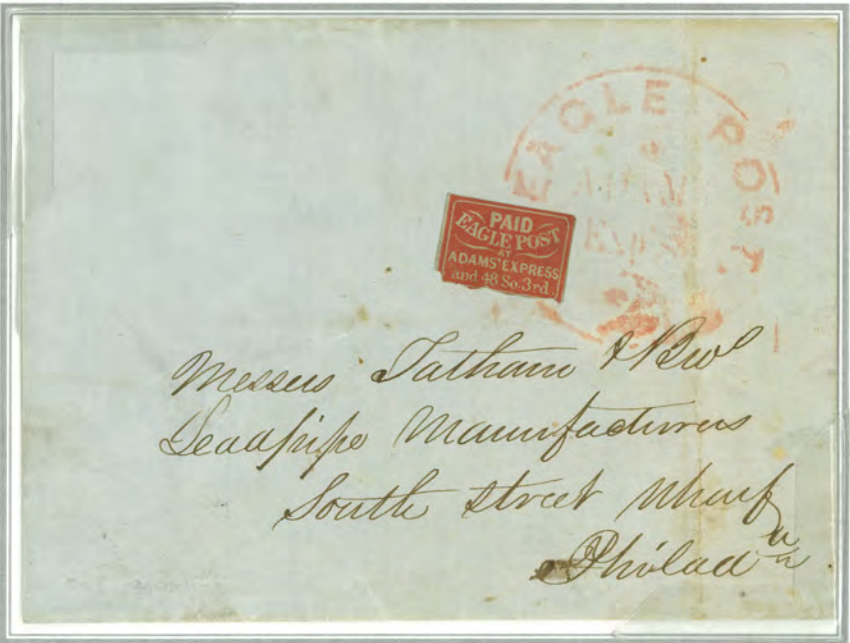 EAGLE POST
ADAMS
EXP
PAID
EAGLE POST
AT
ADAMS' EXPRESS
and 48 So. 3rd.
Messers Tatham & Bros
Leadpipe Manufacturers
South Street Wharf
Philada